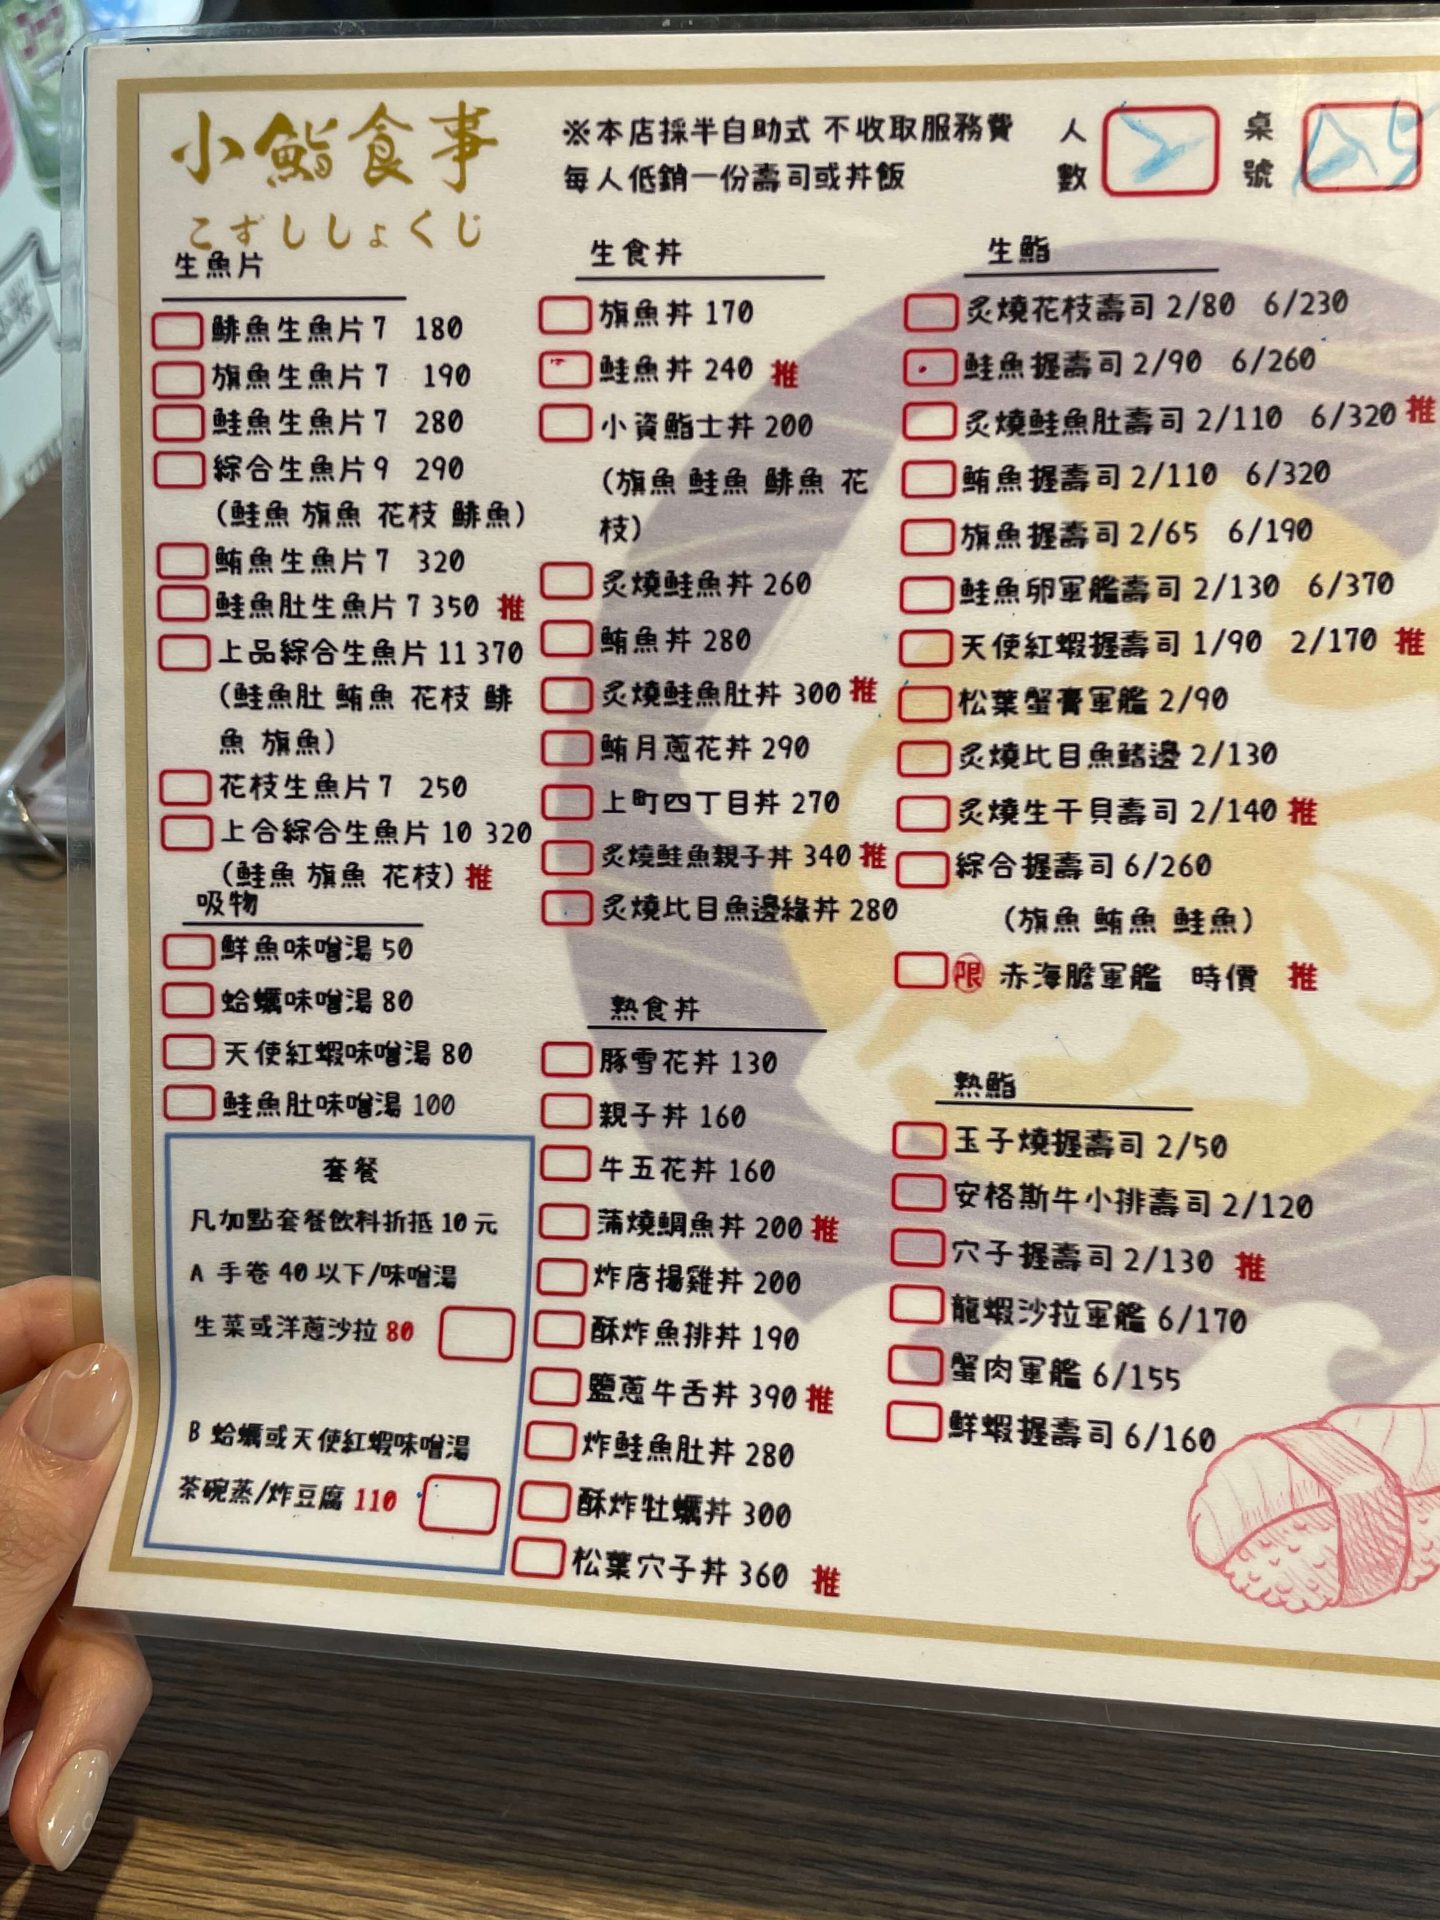 小鮨食事
こずししょくじ
※本店採半自助式 不收取服務費
每人低銷一份壽司或丼飯
人數
桌號
生魚片
鯡魚生魚片 7 180
旗魚生魚片 7 190
鮭魚生魚片 7 280
綜合生魚片 9 290
(鮭魚 旗魚 花枝 鯡魚)
鮪魚生魚片 7 320
鮭魚肚生魚片 7 350 推
上品綜合生魚片 11 370
(鮭魚肚 鮪魚 花枝 鯡
魚 旗魚)
花枝生魚片 7 250
上合綜合生魚片 10 320
(鮭魚 旗魚 花枝) 推
吸物
鮮魚味噌湯 50
蛤蠣味噌湯 80
天使紅蝦味噌湯 80
鮭魚肚味噌湯 100
套餐
凡加點套餐飲料折抵 10 元
A 手卷 40 以下/味噌湯
生菜或洋蔥沙拉 80
B 蛤蠣或天使紅蝦味噌湯
茶碗蒸/炸豆腐 110
生食丼
旗魚丼 170
鮭魚丼 240 推
小資鮨士丼 200
(旗魚 鮭魚 鯡魚 花
枝)
炙燒鮭魚丼 260
鮪魚丼 280
炙燒鮭魚肚丼 300 推
鮪月蔥花丼 290
上町四丁目丼 270
炙燒鮭魚親子丼 340 推
炙燒比目魚邊緣丼 280
熟食丼
豚雪花丼 130
親子丼 160
牛五花丼 160
蒲燒鯛魚丼 200 推
炸唐揚雞丼 200
酥炸魚排丼 190
鹽蔥牛舌丼 390 推
炸鮭魚肚丼 280
酥炸牡蠣丼 300
松葉穴子丼 360 推
生鮨
炙燒花枝壽司 2/80 6/230
鮭魚握壽司 2/90 6/260
炙燒鮭魚肚壽司 2/110 6/320 推
鮪魚握壽司 2/110 6/320
旗魚握壽司 2/65 6/190
鮭魚卵軍艦壽司 2/130 6/370
天使紅蝦握壽司 1/90 2/170 推
松葉蟹膏軍艦 2/90
炙燒比目魚鰭邊 2/130
炙燒生干貝壽司 2/140 推
綜合握壽司 6/260
(旗魚 鮪魚 鮭魚)
限 赤海膽軍艦 時價 推
熟鮨
玉子燒握壽司 2/50
安格斯牛小排壽司 2/120
穴子握壽司 2/130 推
龍蝦沙拉軍艦 6/170
蟹肉軍艦 6/155
鮮蝦握壽司 6/160